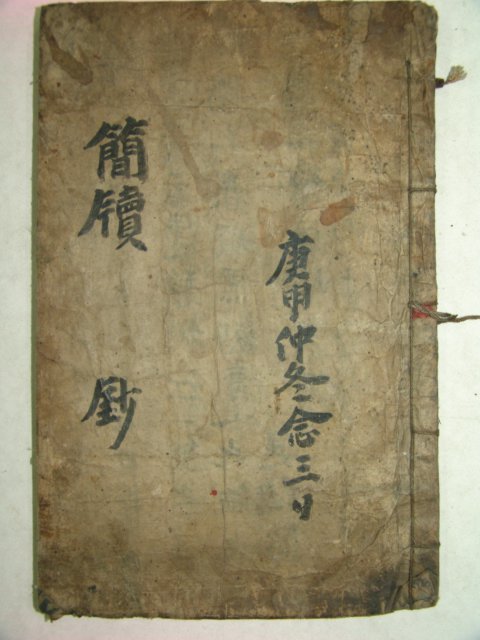 庚申仲冬念三日
簡牘 鈔